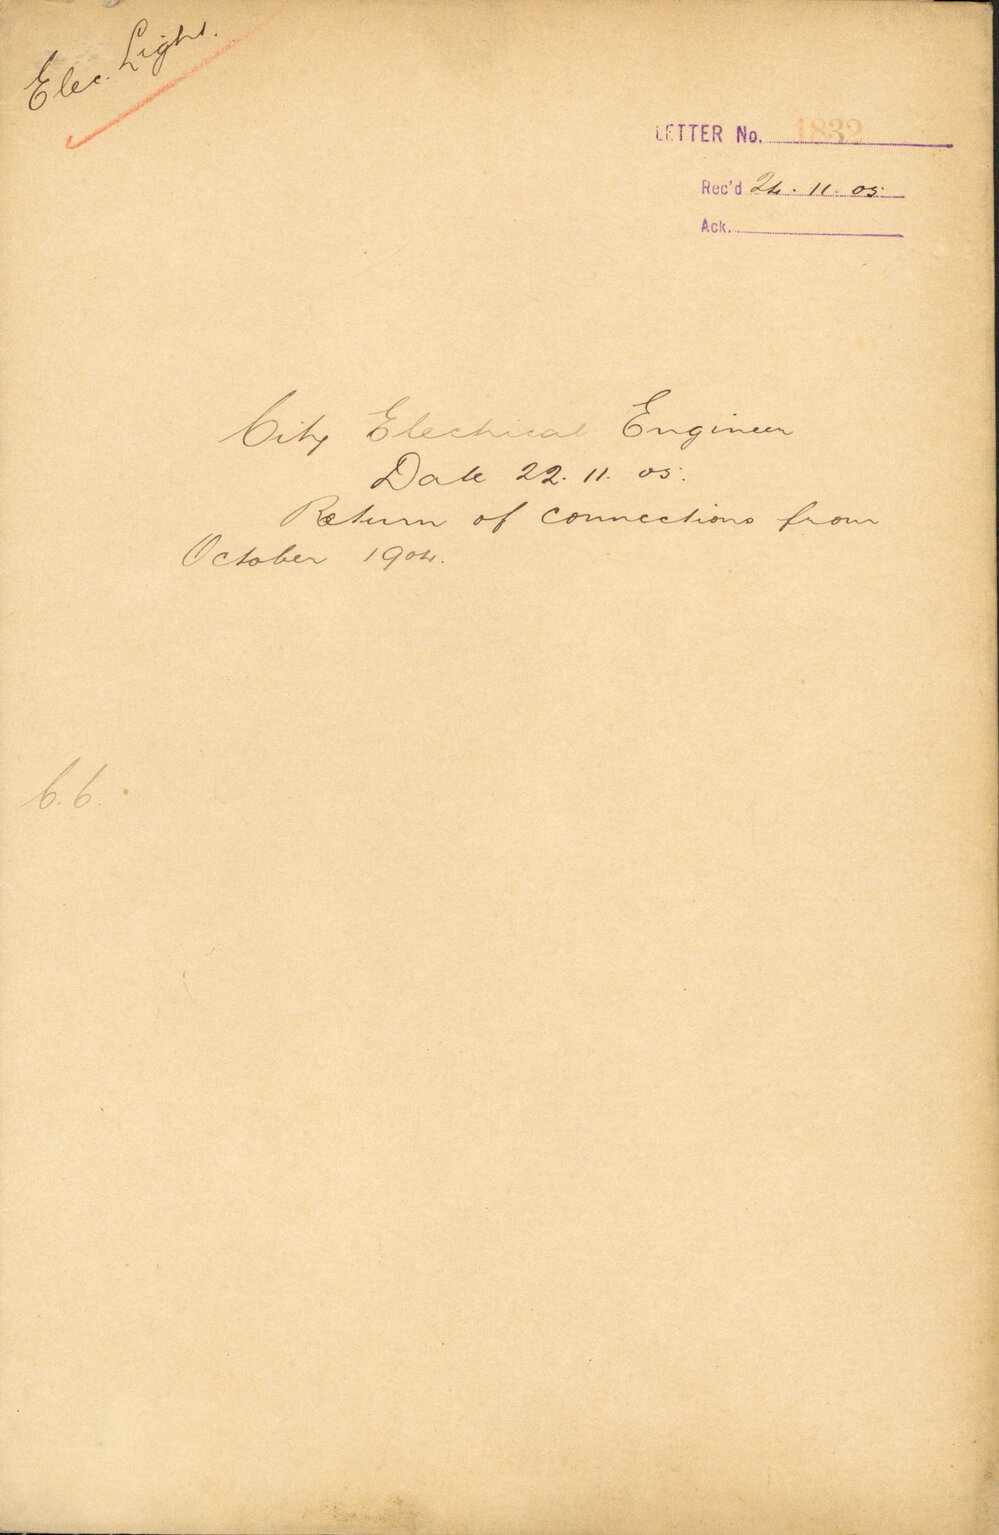 Elec. Light.
LETTER No. 1832
Rec'd 24. 11. 05.
Ack.
City Electrical Engineer
Date 22. 11. 05.
Return of connections from
October 1904.